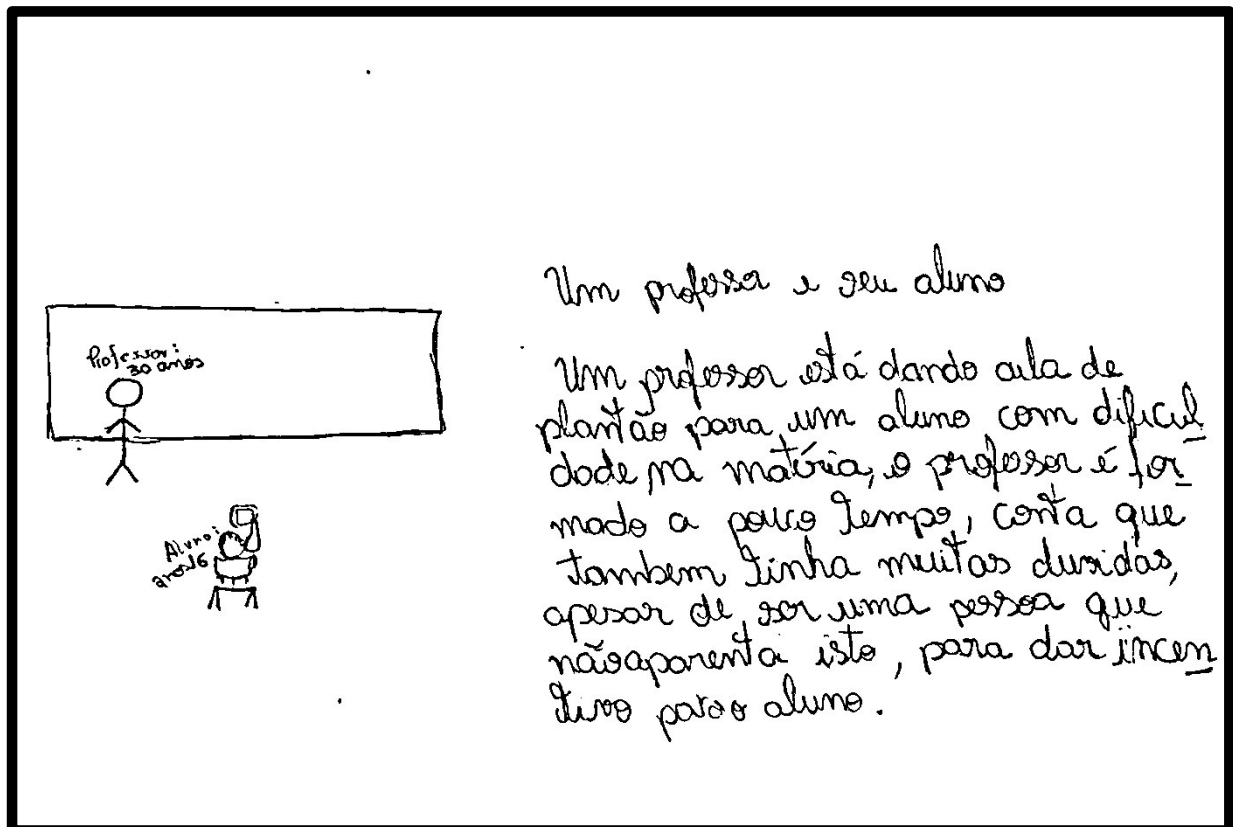 Professor:
30 anos
Aluno:
anos16
Um professor e seu aluno
Um professor está dando aula de
plantão para um aluno com dificul
dade na matéria, o professor é for
mado a pouco tempo, conta que
tambem tinha muitas duvidas,
apesar de ser uma pessoa que
nãoaparenta isto, para dar incen
tivo parao aluno.